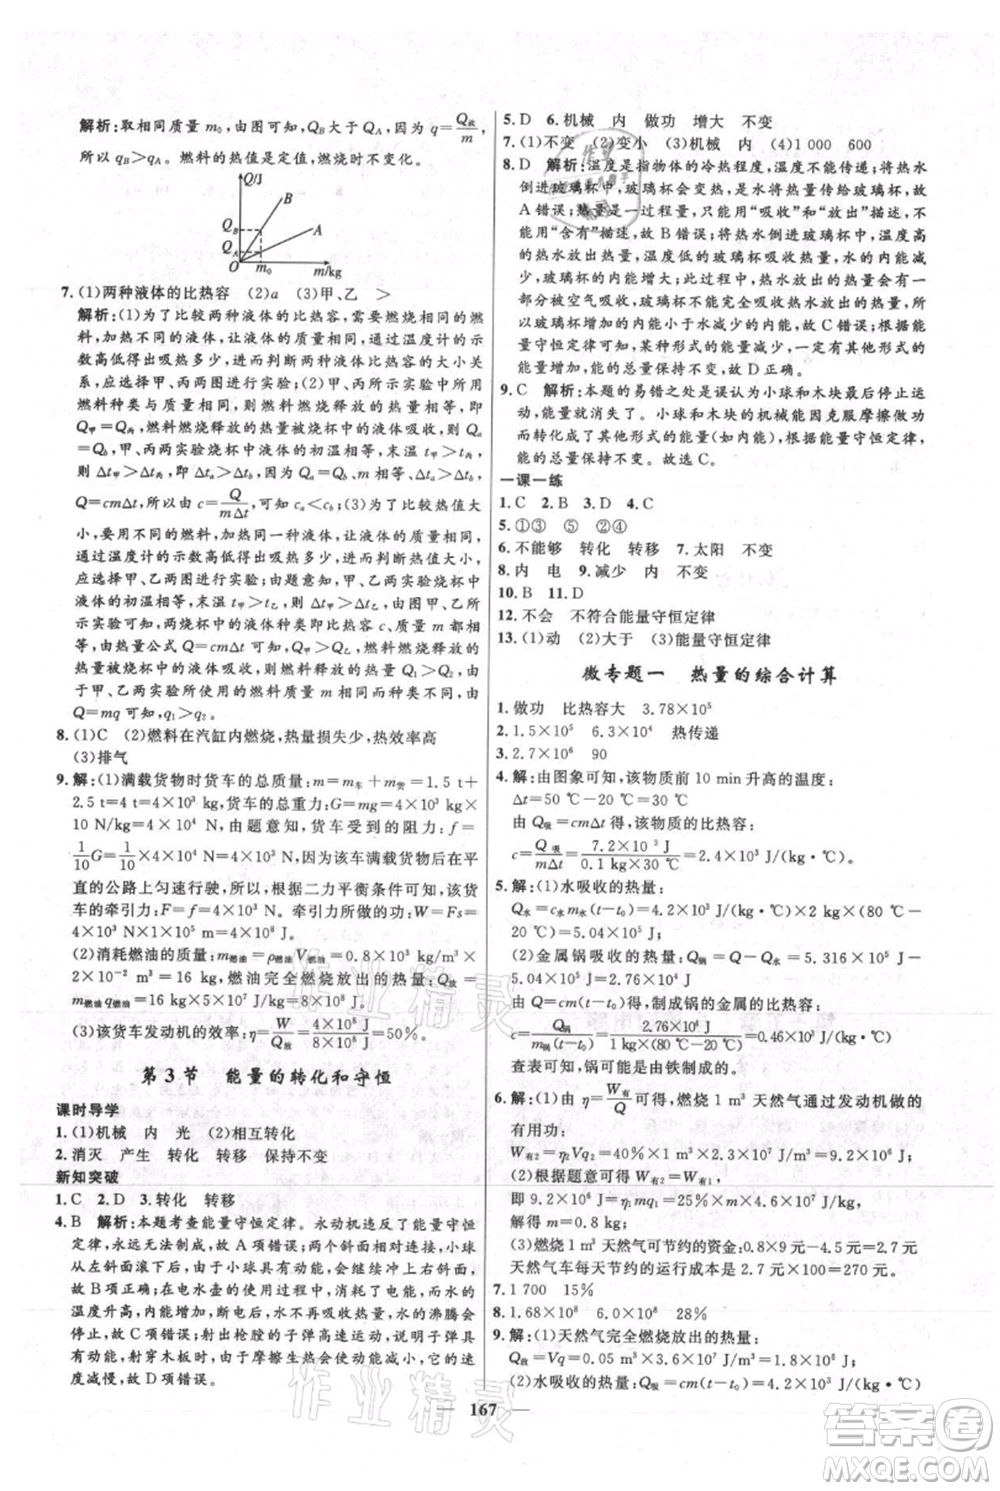 解析:取相同质量 m₀,由图可知,Q_B 大于 Q_A,因为 q=Q放/m,
所以 q_B＞q_A。燃料的热值是定值,燃烧时不变化。
Q/J
B
Q_B
A
Q_A
O m₀ m/kg
7. (1)两种液体的比热容 (2)a (3)甲、乙 ＞
解析:(1)为了比较两种液体的比热容,需要燃烧相同的燃
料,加热不同的液体,让液体的质量相同,通过温度计的示
数高低得出吸热多少,进而判断两种液体比热容的大小关
系,甲、丙两图进行实验。(2)甲、丙两图所示实验中,所用
燃料种类与质量相同,则燃料燃烧释放的热量相同,即
Q甲=Q丙,燃料燃烧释放的热量被烧杯中液体吸收,则 Qa
=Qb;两杯液体的初温相等,末温 t甲＞t丙,Δt=t−t初,
则 Δt甲＞Δt丙,所以 Δta＞Δtb;Qa=Qb、m 相等、Δta＞Δtb、
Q=cmΔt,所以由 c=Q/mΔt可知 ca＜cb;(3)为了比较热值大
小,要用不同的燃料,加热相同的液体,让液体的质量相同,
通过温度计的示数高低得出吸热多少,进而判断热值大小,
故应选择甲、乙两图实验;由题意知,甲、乙两实验烧杯中
液体的初温相等,末温 t甲＞t乙,所以 Δt甲＞Δt乙,由图
甲、乙可知,两烧杯中的液体种类即比热容 c、质量 m 均相
等,由热量公式 Q=cmΔt 可知,Q甲＞Q乙;燃料燃烧释放的
热量被烧杯中的液体吸收,则燃料燃烧放出的热量 Q₁＞Q₂,
由于甲、乙两实验所使用的燃料质量 m 相等,由燃料热值公式
Q=mq 可知,q₁＞q₂。
8. (1)C (2)燃料在汽缸内燃烧,热量损失少,热效率高
(3)排气
9. 解:(1)满载货物时货车的总质量:m=m车+m货=1.5 t+
2.5 t=4 t=4×10³ kg,货车的总重力:G=mg=4×10³ kg×
10 N/kg=4×10⁴ N,由题意知,货车受到的阻力:f=
1/10G=1/10×4×10⁴ N=4×10³ N;因为该车满载货物在平
直的公路上匀速行驶,所以,根据二力平衡条件可知,该货
车的牵引力:F=f=4×10³ N。牵引力所做的功:W=Fs=
4×10³ N×1×10⁵ m=4×10⁸ J
(2)消耗燃油的质量:m燃油=ρ燃油V燃油=0.8×10³ kg/m³×
2×10⁻² m³=16 kg,燃油完全燃烧放出的热量:Q放=
m燃油q燃油=16 kg×5×10⁷ J/kg=8×10⁸ J。
(3)该货车发动机的效率:η=W/Q放=4×10⁸ J/8×10⁸ J=50%。
第 3 节 能量的转化和守恒
课时导学
1. (1)机械 内 光 (2)相互转化
2. 消灭 产生 转化 转移 保持不变
新知突破
1. C 2. D 3. 转化 转移
4. B 解析:本题考查能量守恒定律。永动机违反了能量守恒
定律,永远无法制成,故 A 项错误;两个斜面相对接,小球
从左斜面滚下后继续冲上右斜面,消耗了机械能,转化为内
能,故 B 项正确;在电水壶的量热过程中,水的沸腾需要吸热,水的
温度升高,断电后,水不再吸收热量,水的沸腾会马上
停止,故 C 项错误;射出枪膛的子弹高速运动,具有很大的
动能,射穿木板时,由于摩擦生热使子弹的内能增大,速
度减慢,故 D 项错误。
5. D 6. 机械 内 做功 增大 不变
7. (1)不变 (2)变小 (3)机械 内 (4)1 000 600
8. D 解析:温度是指物体的冷热程度,不能传递;将热水
倒进玻璃杯,玻璃杯会变热,是热量传给玻璃杯,故
A 错误;热量是一过程量,只能用“吸收”和“放出”描述,不
能用“含有”描述,故 B 错误;将热水倒进玻璃杯中,热水放
出热量,内能减小;玻璃杯温度升高是因为吸收了热水放
出的热量,玻璃杯的内能增大;此过程中,热水放出的热量有一
部分被空气吸收,还有一部分用于液体蒸发时吸热,所
以玻璃杯增加的内能小于水减少的内能,故 C 错误;根据能
量守恒定律可知,某种形式的能量减少,其他形式的能量增
加,能的总量保持不变,故 D 正确。
9. C 解析:本题的易错之处是误以为小球和木块最后停止运
动,能量就消失了。小球和木块的机械能因克服摩擦做功
而转化成了其他形式的能(如内能),根据能量守恒定律,
能的总量保持不变。故选 C。
一课一练
1. C 2. B 3. D 4. C
5. ①③ ⑤ ②④
6. 不能够 转化 转移 7. 太阳 不变
8. 内 电 9. 减少 内 不变
10. B 11. D
12. 不会 不符合能量守恒定律
13. (1)动 (2)大于 (3)能量守恒定律
微专题一 热量的综合计算
1. 做功 比热容大 3.78×10⁵
2. 1.5×10⁵ 6.3×10⁴ 热传递
3. 2.7×10⁶ 90
4. 解:由图象可知,该物质前 10 min 升高的温度:
Δt=50 ℃−20 ℃=30 ℃
由 Q吸=cmΔt 得,该物质的比热容:
c=Q吸/mΔt=7.2×10³ J/0.1 kg×30 ℃=2.4×10³ J/(kg·℃)。
5. 解:(1)水吸收的热量:
Q水=c水m水(t−t₀)=4.2×10³ J/(kg·℃)×2 kg×(80 ℃
−20 ℃)=5.04×10⁵ J。
(2)金属锅吸收的热量:Q锅=Q−Q水=5.316×10⁵ J−
5.04×10⁵ J=2.76×10⁴ J
由 Q=cm(t−t₀)得,制成锅的金属的比热容:
c=Q锅/m锅(t−t₀)=2.76×10⁴ J/1 kg×(80 ℃−20 ℃)=0.46×10³ J/(kg·℃)
查表可知,锅可能是由铁制成的。
6. 解:(1)由 η=W有/Q可得,燃烧 1 m³ 天然气通过发动机做的
有用功:
W有2=η₂Vq₂=40%×1 m³×2.3×10⁷ J/m³=9.2×10⁶ J
(2)根据题意可得 W有1=W有2
即 9.2×10⁶ J=η₁mq₁=25%×m×4.6×10⁷ J/kg
解得 m=0.8 kg;
(3)燃烧 1 m³ 天然气可节约的资金:0.8×9 元−4.5 元=2.7 元
天然气车每天节约的运行成本:2.7 元×100=270 元。
7. 1 700 15%
8. 1.68×10⁸ 6.0×10⁸ 28%
9. 解:(1)天然气完全燃烧放出的热量:
Q放=Vq=0.05 m³×3.2×10⁷ J/m³=1.6×10⁶ J
(2)水吸收的热量:Q吸=cm(t−t₀)=4.2×10³ J/(kg·℃)
167
作业精灵
作业精灵
答案圈
MXQE.COM